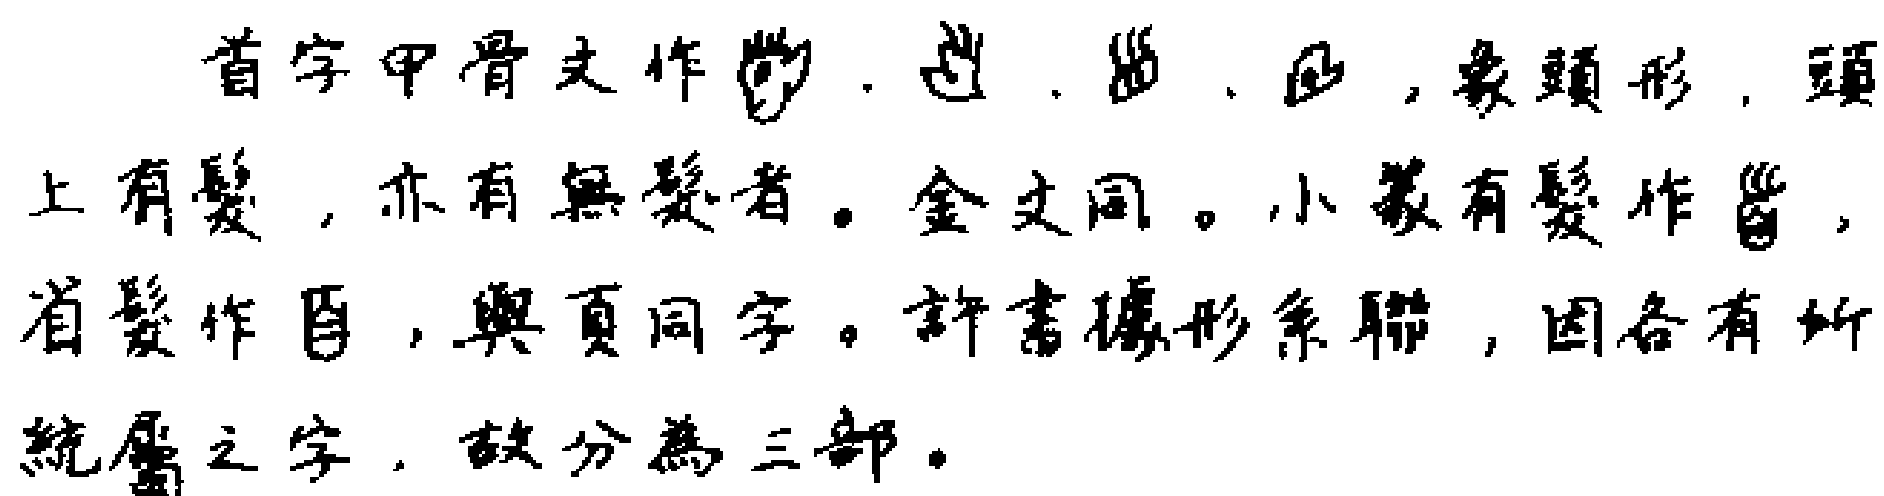 首字甲骨文作、、、，象頭形，頭
上有髮，亦有無髮者。金文同。小篆有髮作，
省髮作𦣻，與頁同字。許書據形系聯，因各有所
統屬之字，故分為三部。